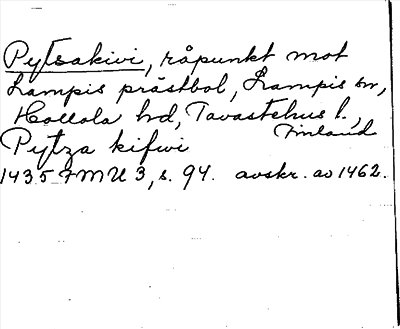 Pytsakivi, råpunkt mot
Lampis prästbol, Lampis sn,
Hollola hd, Tavastehus l.,
Finland
Pytza kifwi
1435 FMU 3, s. 94. avskr. av 1462.